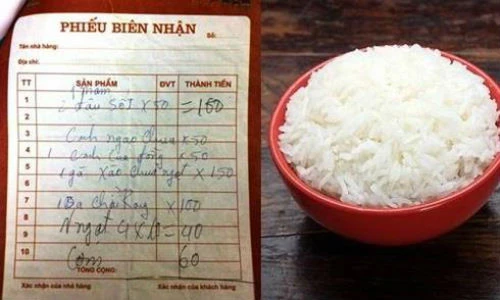 PHIẾU BIÊN NHẬN
Số:
Tên nhà hàng:
Địa chỉ:
TT SẢN PHẨM ĐVT THÀNH TIỀN
1
2 đậu sốt x 50 = 150
2
3 Canh ngao chua x 50
4 1 canh cua đồng x 50
5 1 gà xào chua ngọt x 150
6
7 1 Ba chỉ x 100
8 N ngọt 4 x 10 = 40
9
10 Cơm 60
TỔNG CỘNG:
Xác nhận của nhà hàng Xác nhận của khách hàng